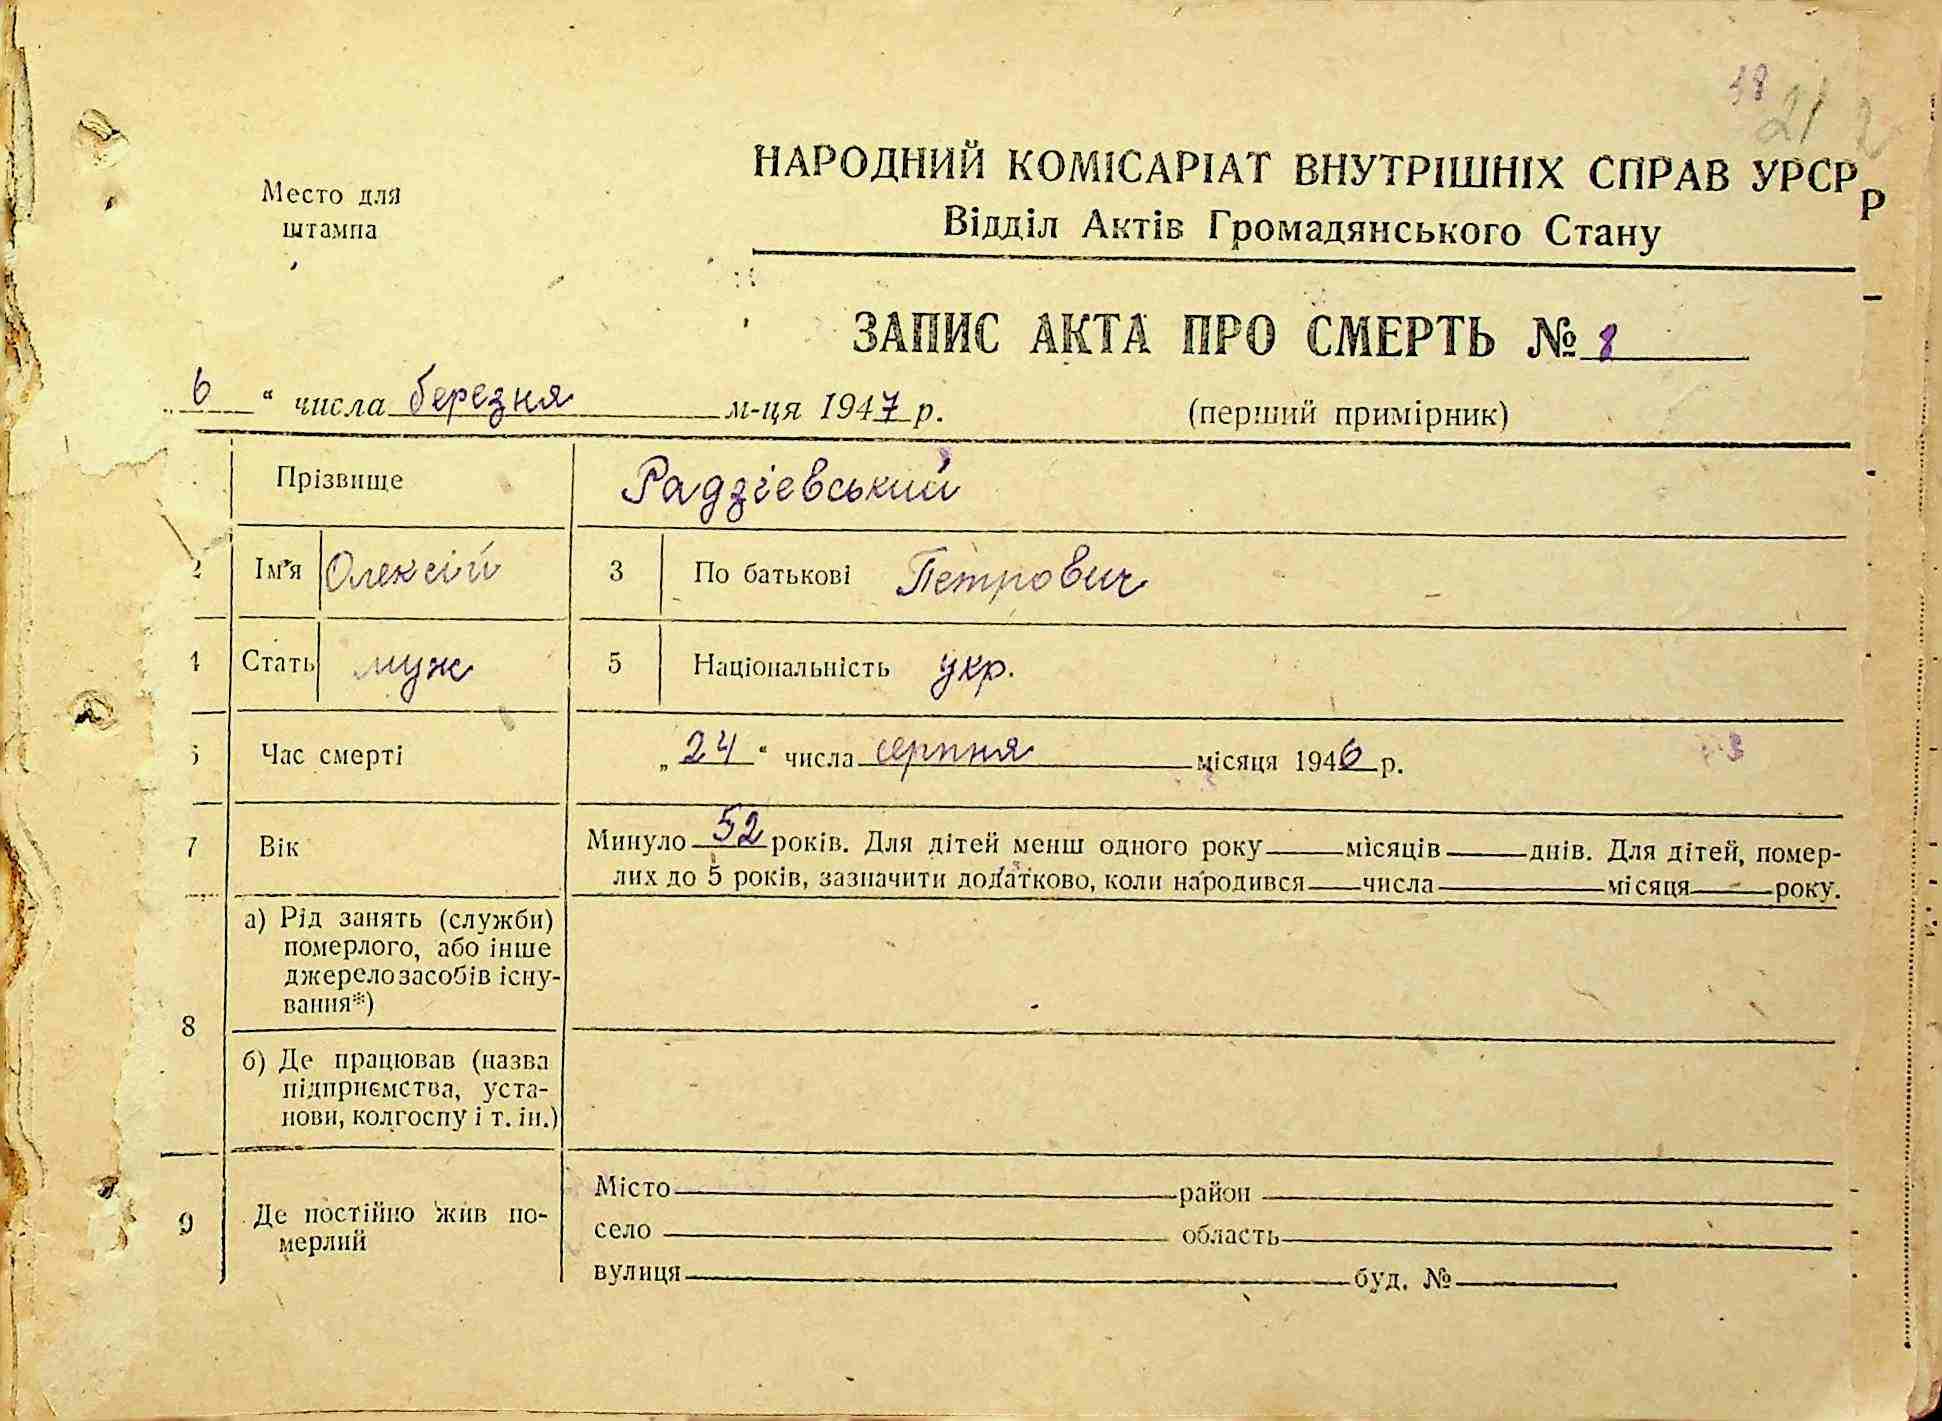 18 21 2
Место для
штампа
НАРОДНИЙ КОМІСАРІАТ ВНУТРІШНІХ СПРАВ УРСР
Р
Відділ Актів Громадянського Стану
ЗАПИС АКТА ПРО СМЕРТЬ № 8
6 “ числа березня м-ця 1947 р. (перший примірник)
Прізвище Радзієвський
2 Ім'я Олексій 3 По батькові Петрович
4 Стать муж 5 Національність укр.
Час смерті „ 24 “ числа серпня місяця 1946 р.
7 Вік Минуло 52 років. Для дітей менш одного року місяців днів. Для дітей, помер-
лих до 5 років, зазначити додатково, коли народився числа місяця року.
8
а) Рід занять (служби)
померлого, або інше
джерело засобів існу-
вання*)
б) Де працював (назва
підприємства, уста-
нови, колгоспу і т. ін.)
9 Де постійно жив по-
мерлий
Місто район
село область
вулиця буд. №